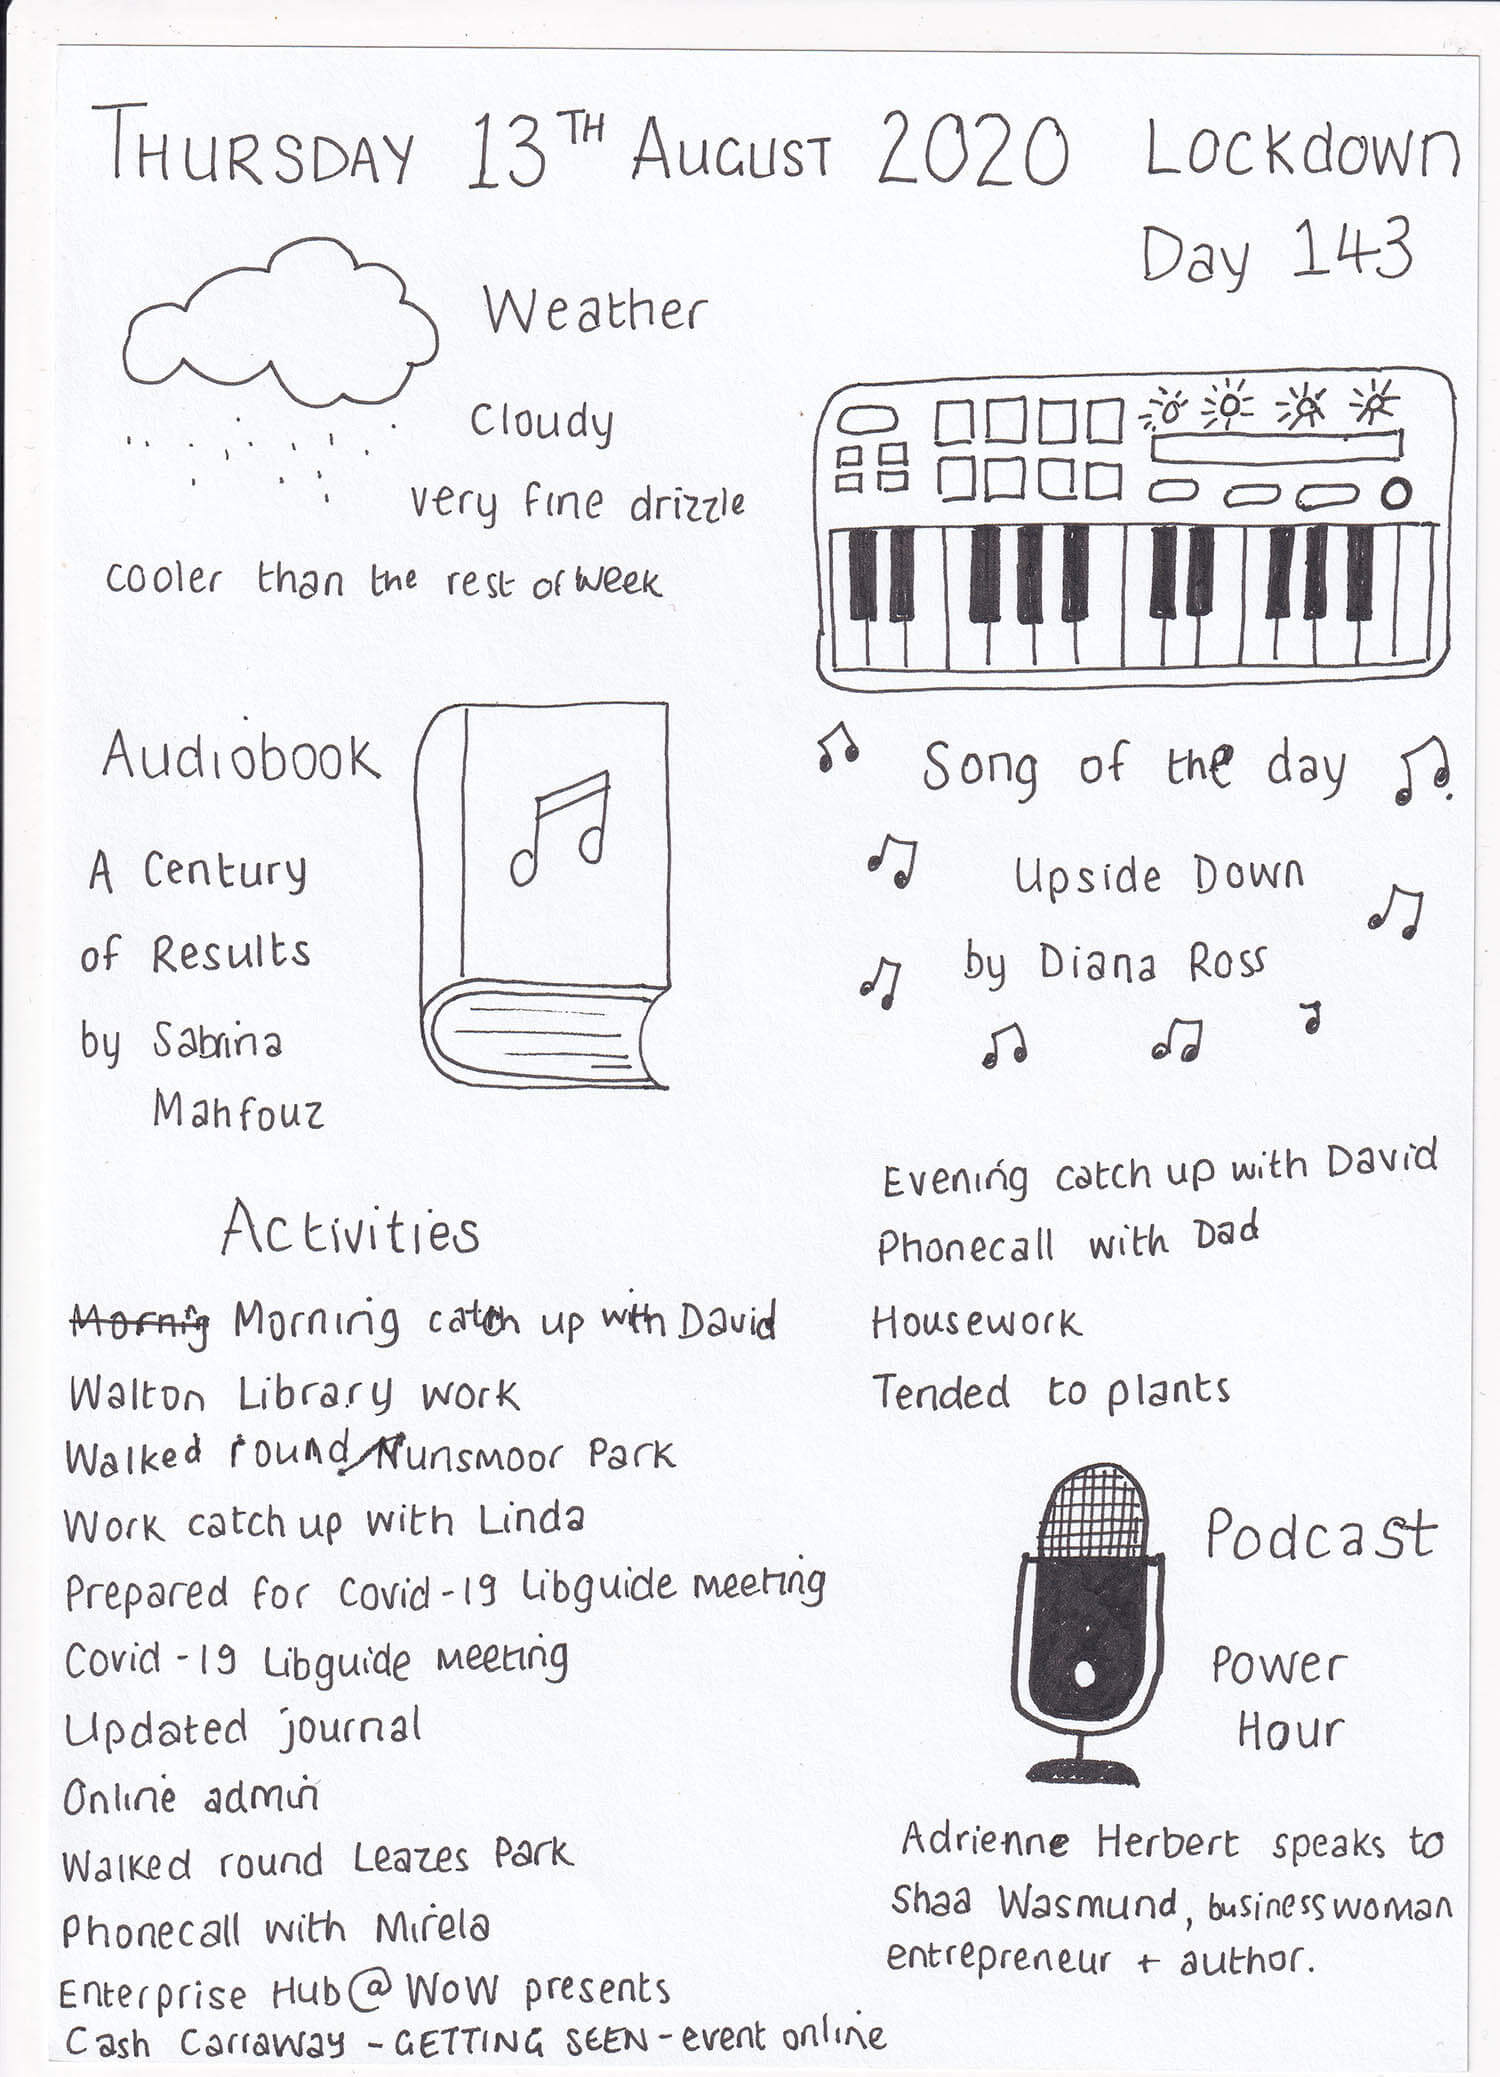 THURSDAY 13TH AUGUST 2020 Lockdown
Day 143
Weather
Cloudy
very fine drizzle
cooler than the rest of week
Audiobook
A Century
of Results
by Sabrina
Mahfouz
Song of the day
Upside Down
by Diana Ross
Activities
Mornig Morning catch up with David
Walton Library work
Walked round Nunsmoor Park
Work catch up with Linda
Prepared for Covid-19 Libguide meeting
Covid-19 Libguide meeting
Updated journal
Online admin
Walked round Leazes Park
Phonecall with Mirela
Enterprise Hub@WOW presents
Cash Carraway - GETTING SEEN - event online
Evening catch up with David
Phonecall with Dad
Housework
Tended to plants
Podcast
Power
Hour
Adrienne Herbert speaks to
Shaa Wasmund, businesswoman
entrepreneur + author.